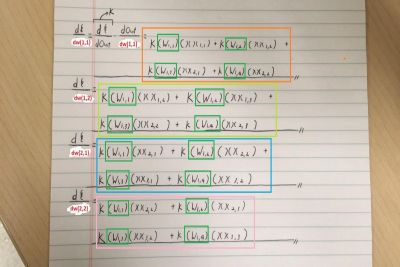 k
dℓ/dw(1,1) = dℓ/dOut · dOut/dw(1,1) = K(W1,1)(XX1,1) + K(W1,2)(XX1,2) +
K(W1,3)(XX2,1) + K(W1,4)(XX2,2) //
dℓ/dw(1,2) = K(W1,1)(XX1,2) + K(W1,2)(XX1,3) +
K(W1,3)(XX2,2) + K(W1,4)(XX2,3) //
dℓ/dw(2,1) = K(W1,1)(XX2,1) + K(W1,2)(XX2,2) +
K(W1,3)(XX3,1) + K(W1,4)(XX3,2) //
dℓ/dw(2,2) = K(W1,1)(XX2,2) + K(W1,2)(XX2,3)
K(W1,3)(XX3,2) + K(W1,4)(XX3,3) //